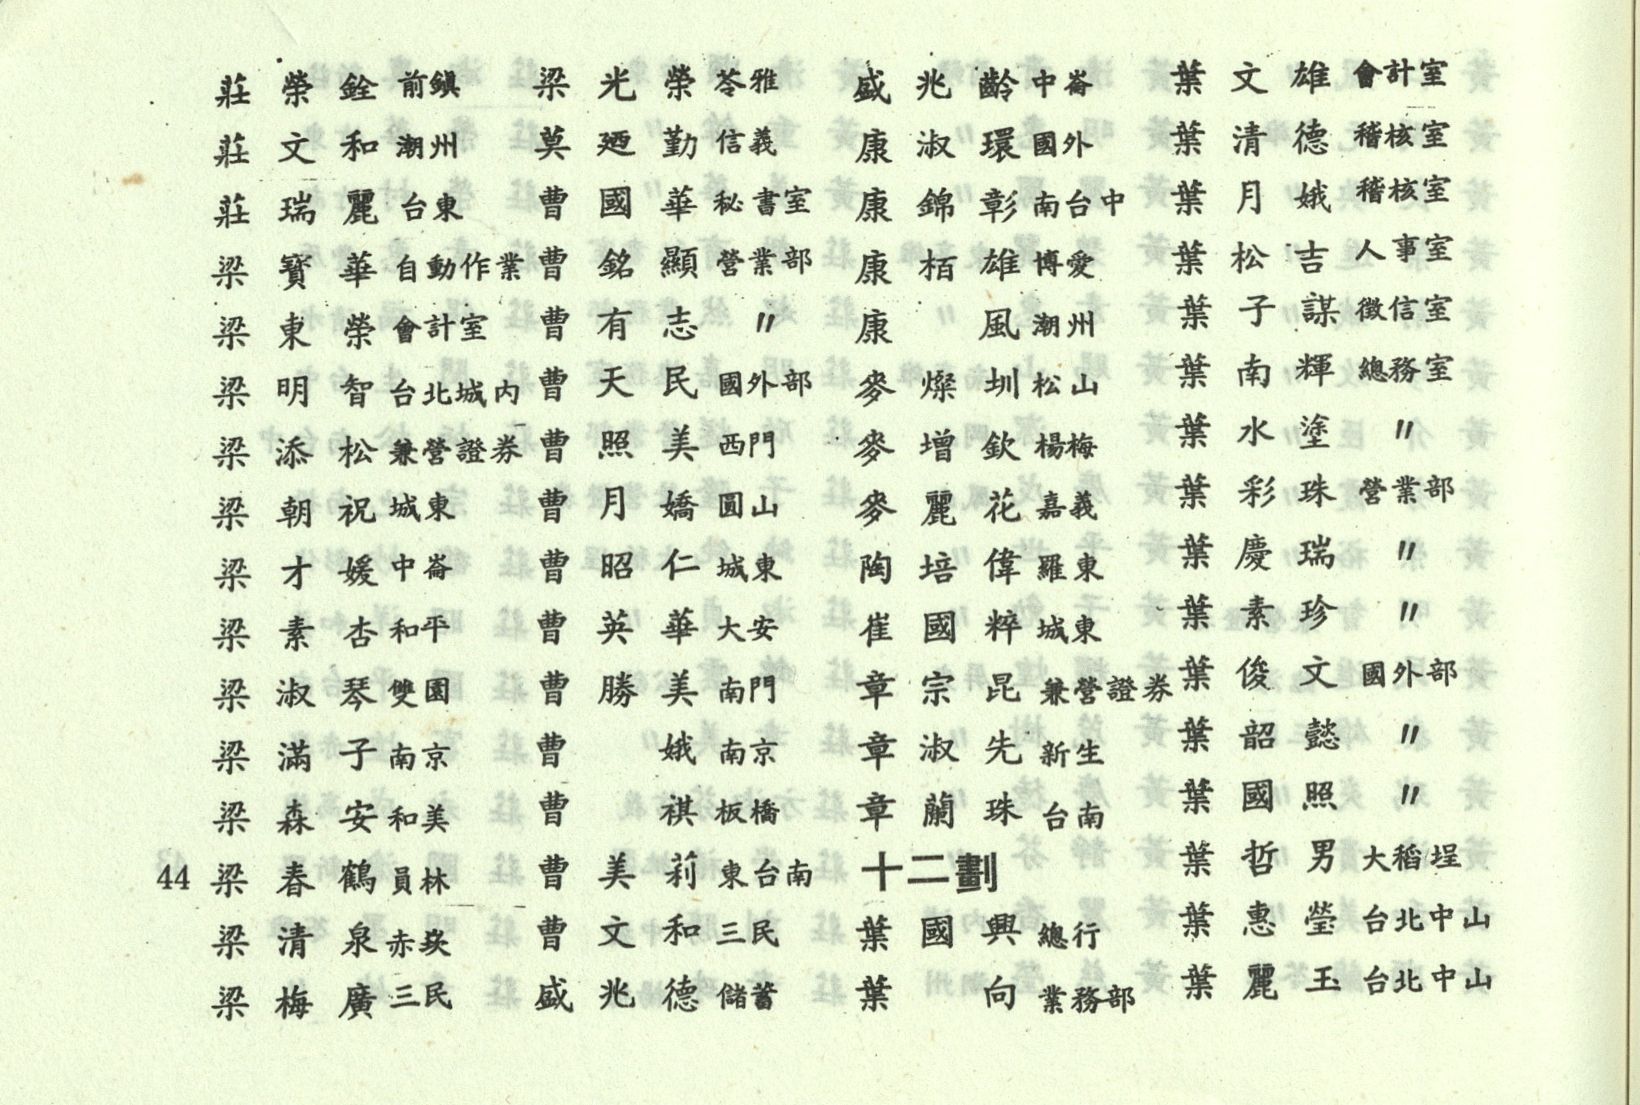 莊榮銓 前鎮
莊文和 潮州
莊瑞麗 台東
梁寶華 自動作業
梁東榮 會計室
梁明智 台北城內
梁添松 兼營證券
梁朝祝 城東
梁才媛 中崙
梁素杏 和平
梁淑琴 雙園
梁滿子 南京
梁森安 和美
梁春鶴 員林
梁清泉 赤崁
梁梅廣 三民
梁光榮 苓雅
莫廼勤 信義
曹國華 秘書室
曹銘顯 營業部
曹有志 〃
曹天民 國外部
曹照美 西門
曹月嬌 圓山
曹昭仁 城東
曹英華 大安
曹勝美 南門
曹娥 南京
曹祺 板橋
曹美莉 東台南
曹文和 三民
盛兆德 儲蓄
盛兆齡 中崙
康淑環 國外
康錦彰 南台中
康栢雄 博愛
康風 潮州
麥燦圳 松山
麥增欽 楊梅
麥麗花 嘉義
陶培偉 羅東
崔國粹 城東
章宗昆 兼營證券
章淑先 新生
章蘭珠 台南
十二劃
葉國興 總行
葉向 業務部
葉文雄 會計室
葉清德 稽核室
葉月娥 稽核室
葉松吉 人事室
葉子謀 徵信室
葉南輝 總務室
葉水塗 〃
葉彩珠 營業部
葉慶瑞 〃
葉素珍 〃
葉俊文 國外部
葉韶懿 〃
葉國照 〃
葉哲男 大稻埕
葉惠瑩 台北中山
葉麗玉 台北中山
44